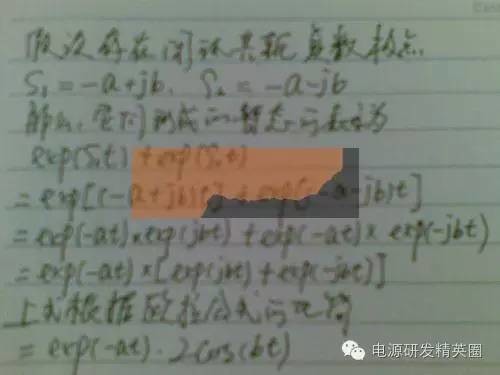 假设存在闭环共轭复数极点
S₁ = -a+jb, S₂ = -a-jb
那么,它们形成的暂态函数为
exp(S₁t) + exp(S₂t)
= exp[(-a+jb)t] + exp[(-a-jb)t]
= exp(-at)×exp(jbt) + exp(-at)× exp(-jbt)
= exp(-at)×[exp(jbt)+exp(-jbt)]
上式根据欧拉公式可化简
= exp(-at)·2cos(bt)
电源研发精英圈